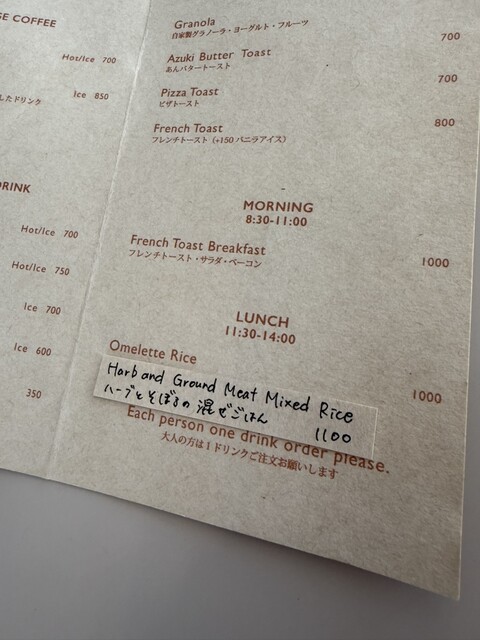 COFFEE
Hot/Ice 700
Ice 850
したドリンク
Hot/Ice 700
Hot/Ice 750
Ice 700
Ice 600
350
Granola 700
自家製グラノーラ・ヨーグルト・フルーツ
Azuki Butter Toast 700
あんバタートースト
Pizza Toast 800
ピザトースト
French Toast
フレンチトースト (+150 バニラアイス)
MORNING
8:30-11:00
French Toast Breakfast 1000
フレンチトースト・サラダ・ベーコン
LUNCH
11:30-14:00
Omelette Rice 1000
Harb and Ground Meat Mixed Rice
ハーブとそぼろの混ぜごはん 1100
Each person one drink order please.
大人の方は1ドリンクご注文お願いします